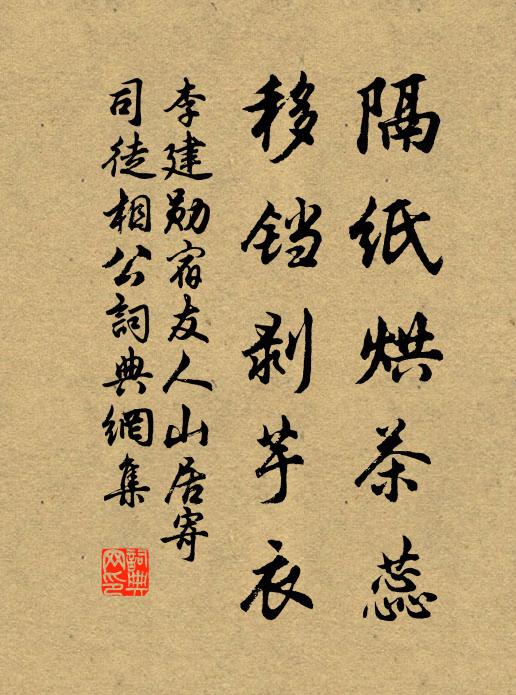 隔紙烘茶蕊
移铛剥芋衣
李建勋宿友人山居寄
司徒相公詞典網集
詞典网印